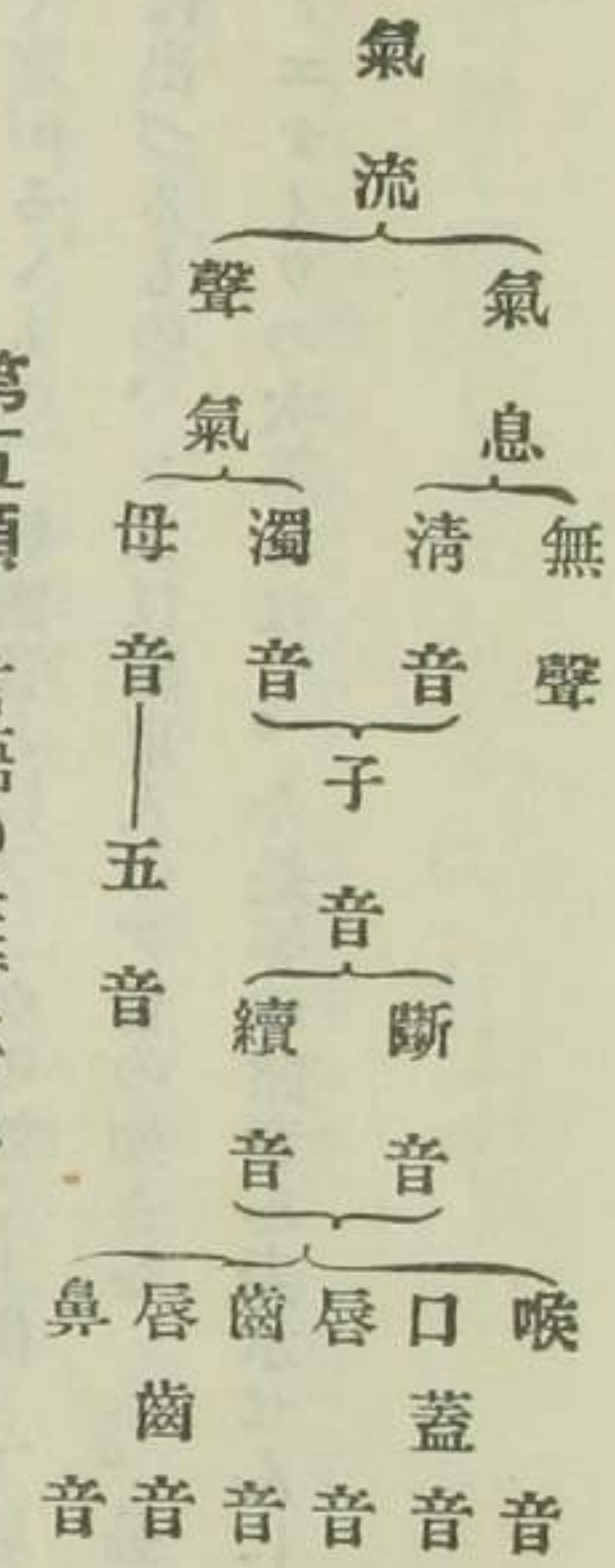 氣流
氣息
聲氣
無聲
淸音
濁音
母音
子音
五音
斷音
續音
喉音
口蓋音
唇音
齒音
唇齒音
鼻音